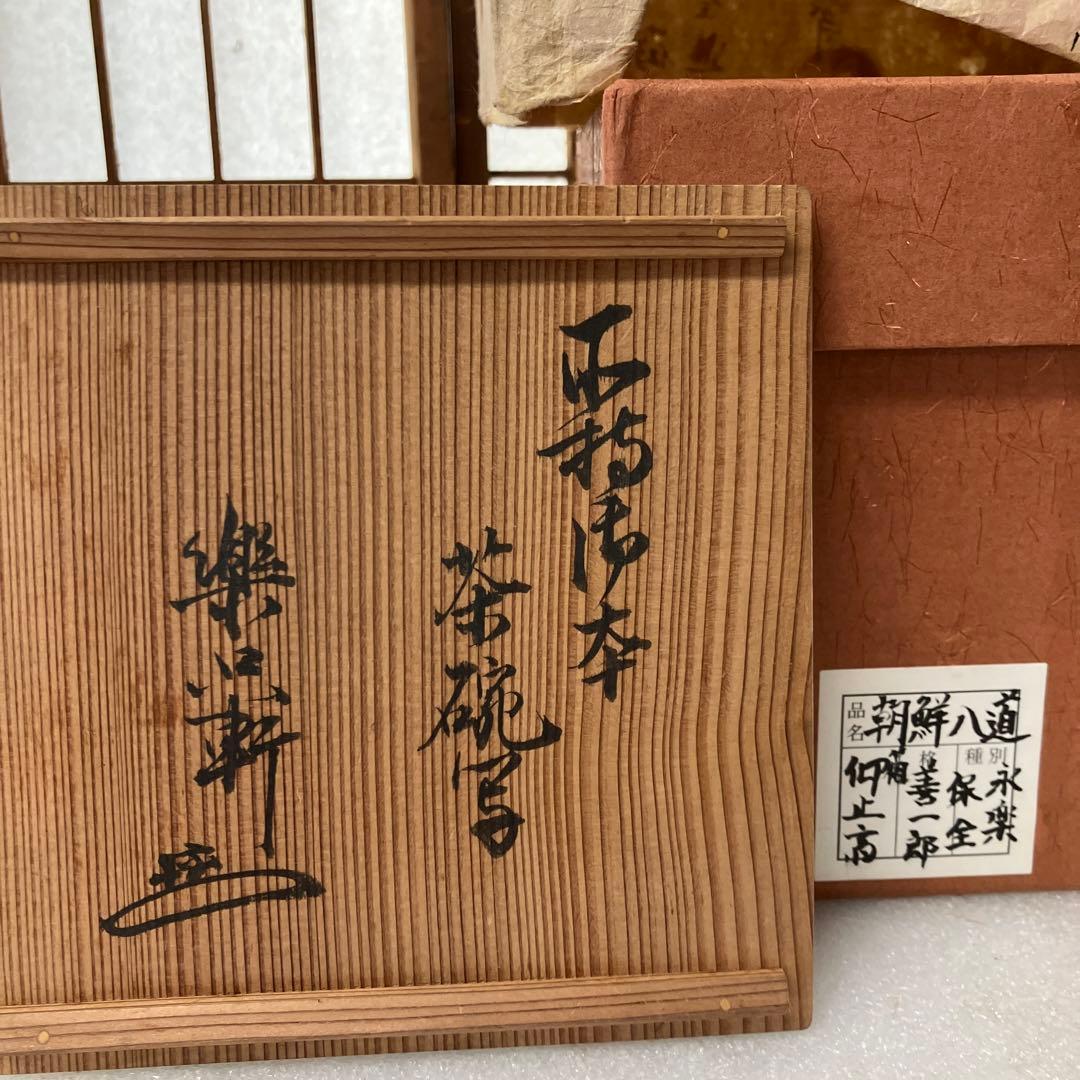 所持御本
茶碗写
樂只軒
品名
朝鮮八道
種別
格
永楽
保全
善一郎
仰止斎